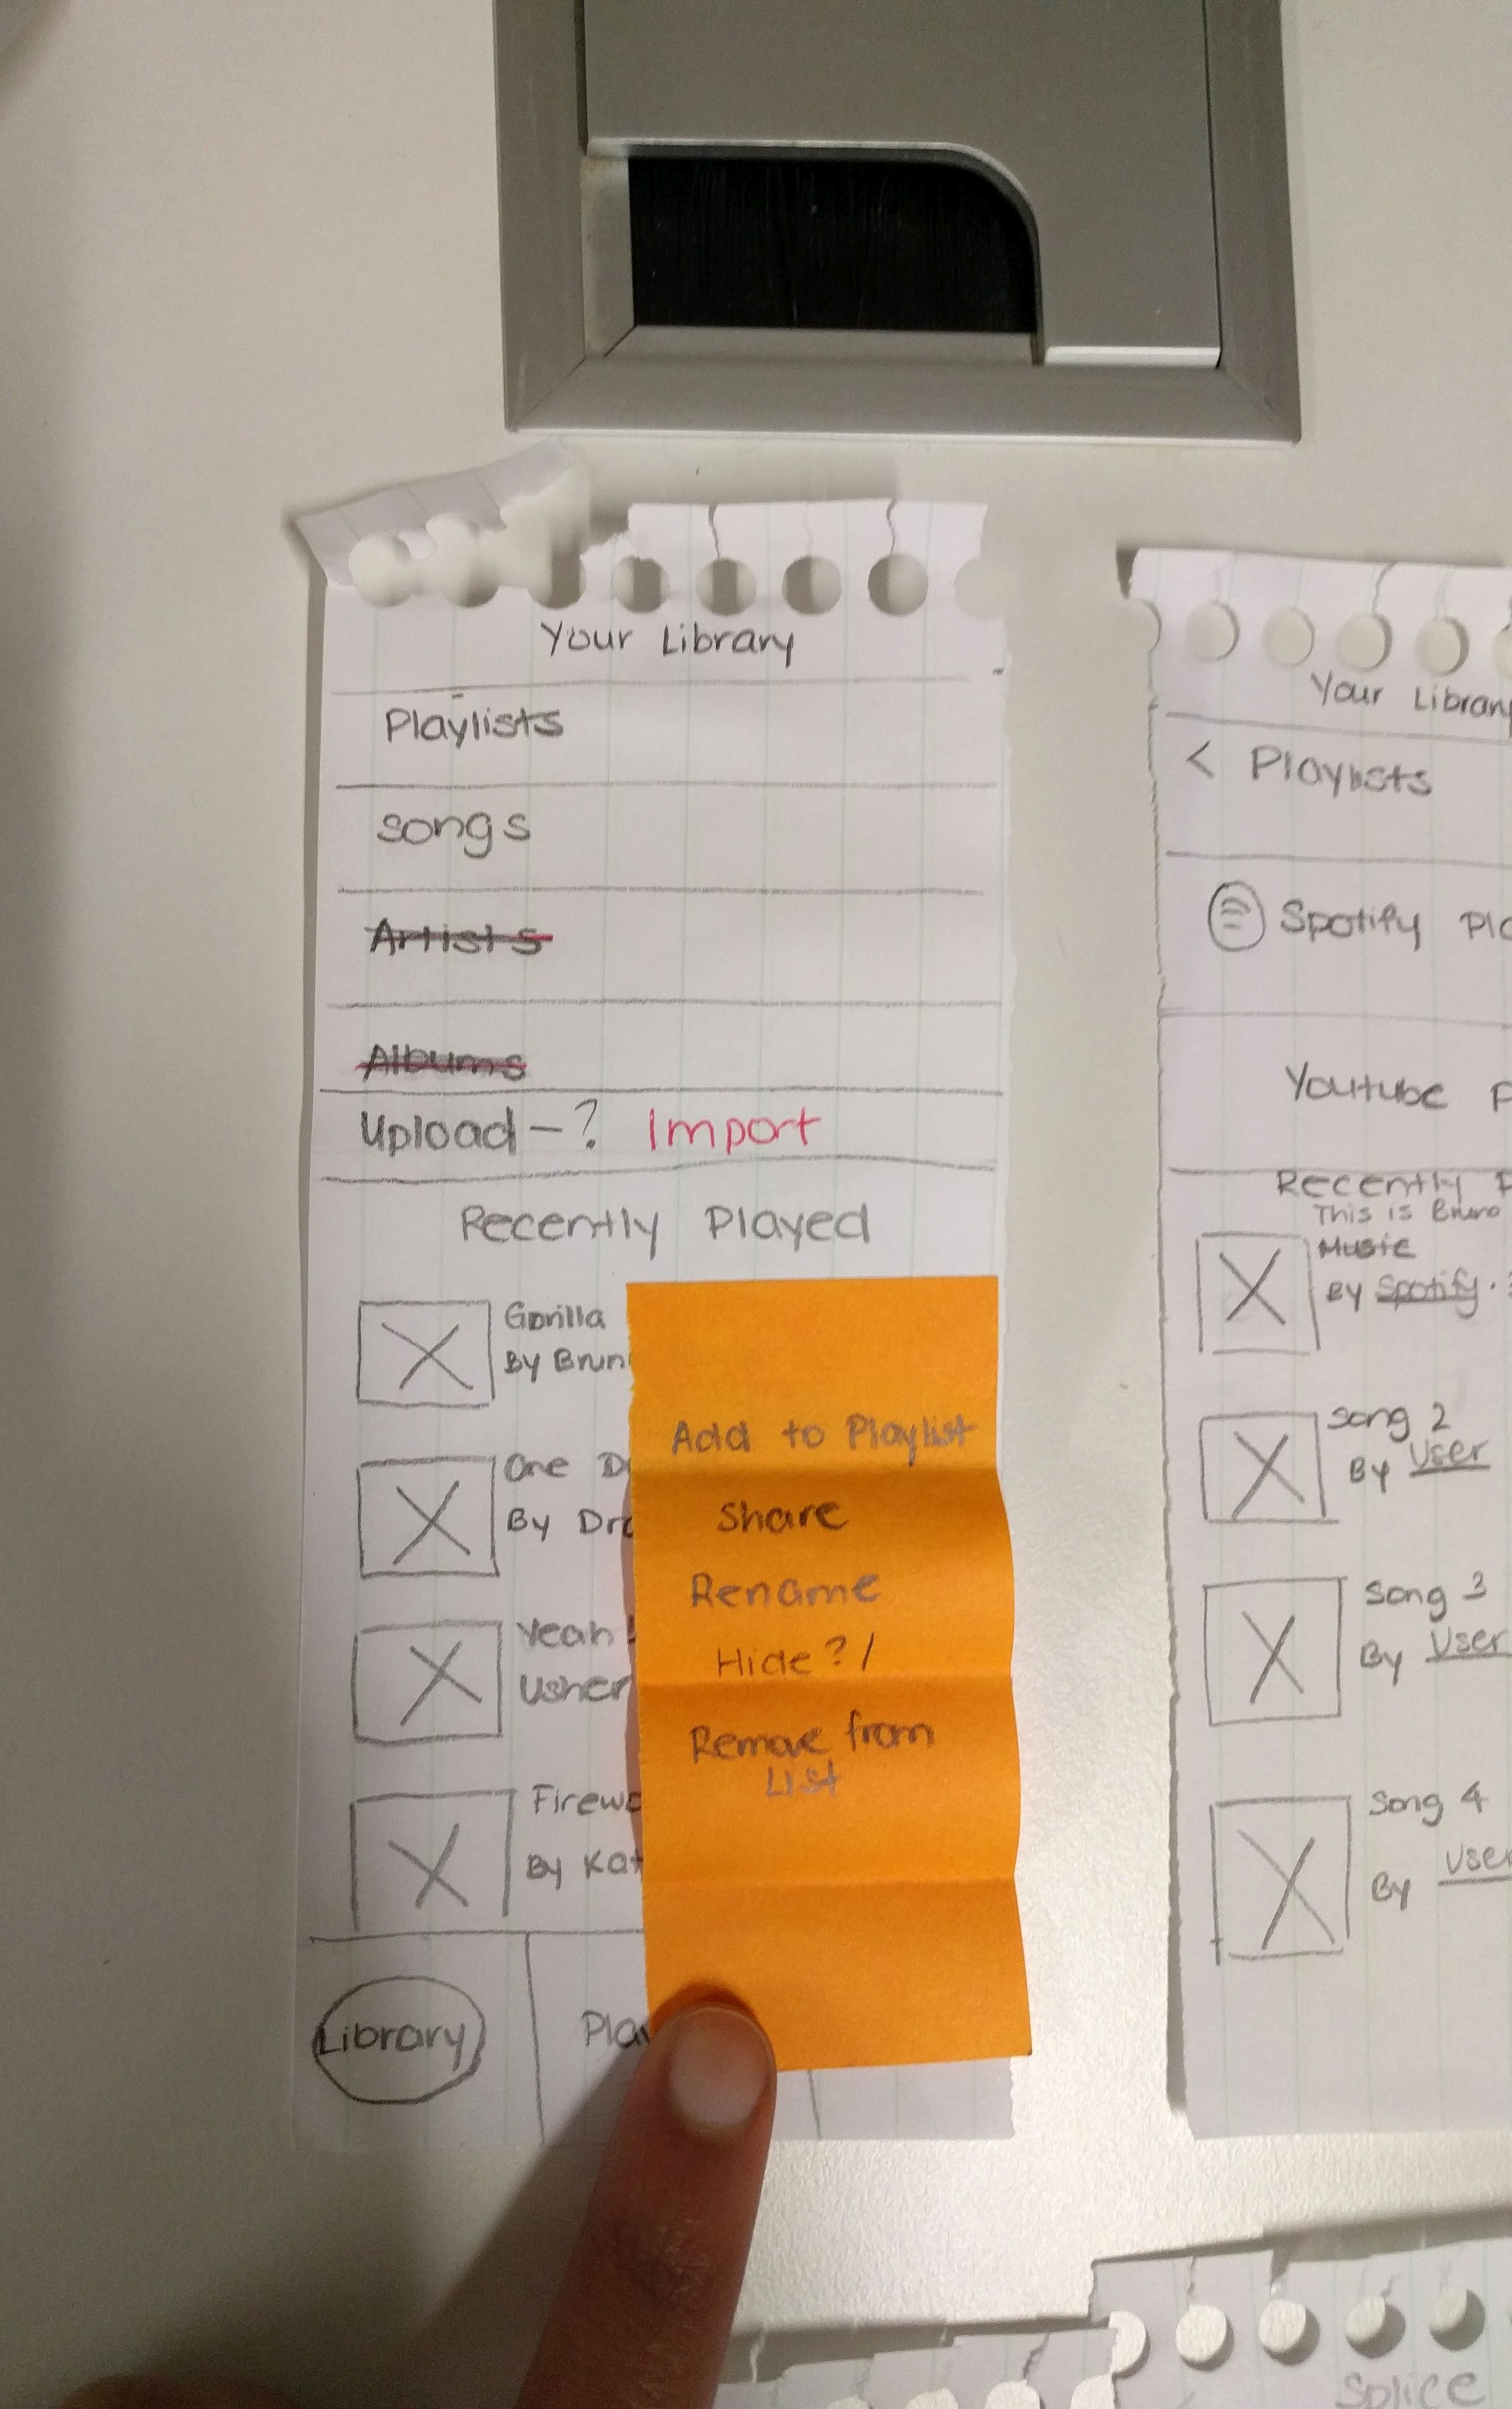 Your Library
Playlists
songs
Artists
Albums
Upload - ? Import
Recently Played
Gorilla
By Brun
One D
By Dra
Yeah!
Usher
Firewo
By Kat
Library
Play
Add to Playlist
Share
Rename
Hide ? /
Remove from
List
Your Library
< Playlists
Spotify Pla
Youtube P
Recently P
This is Bruno
Music
By Spotify .
Song 2
By User
Song 3
By User
Song 4
By User
Splice